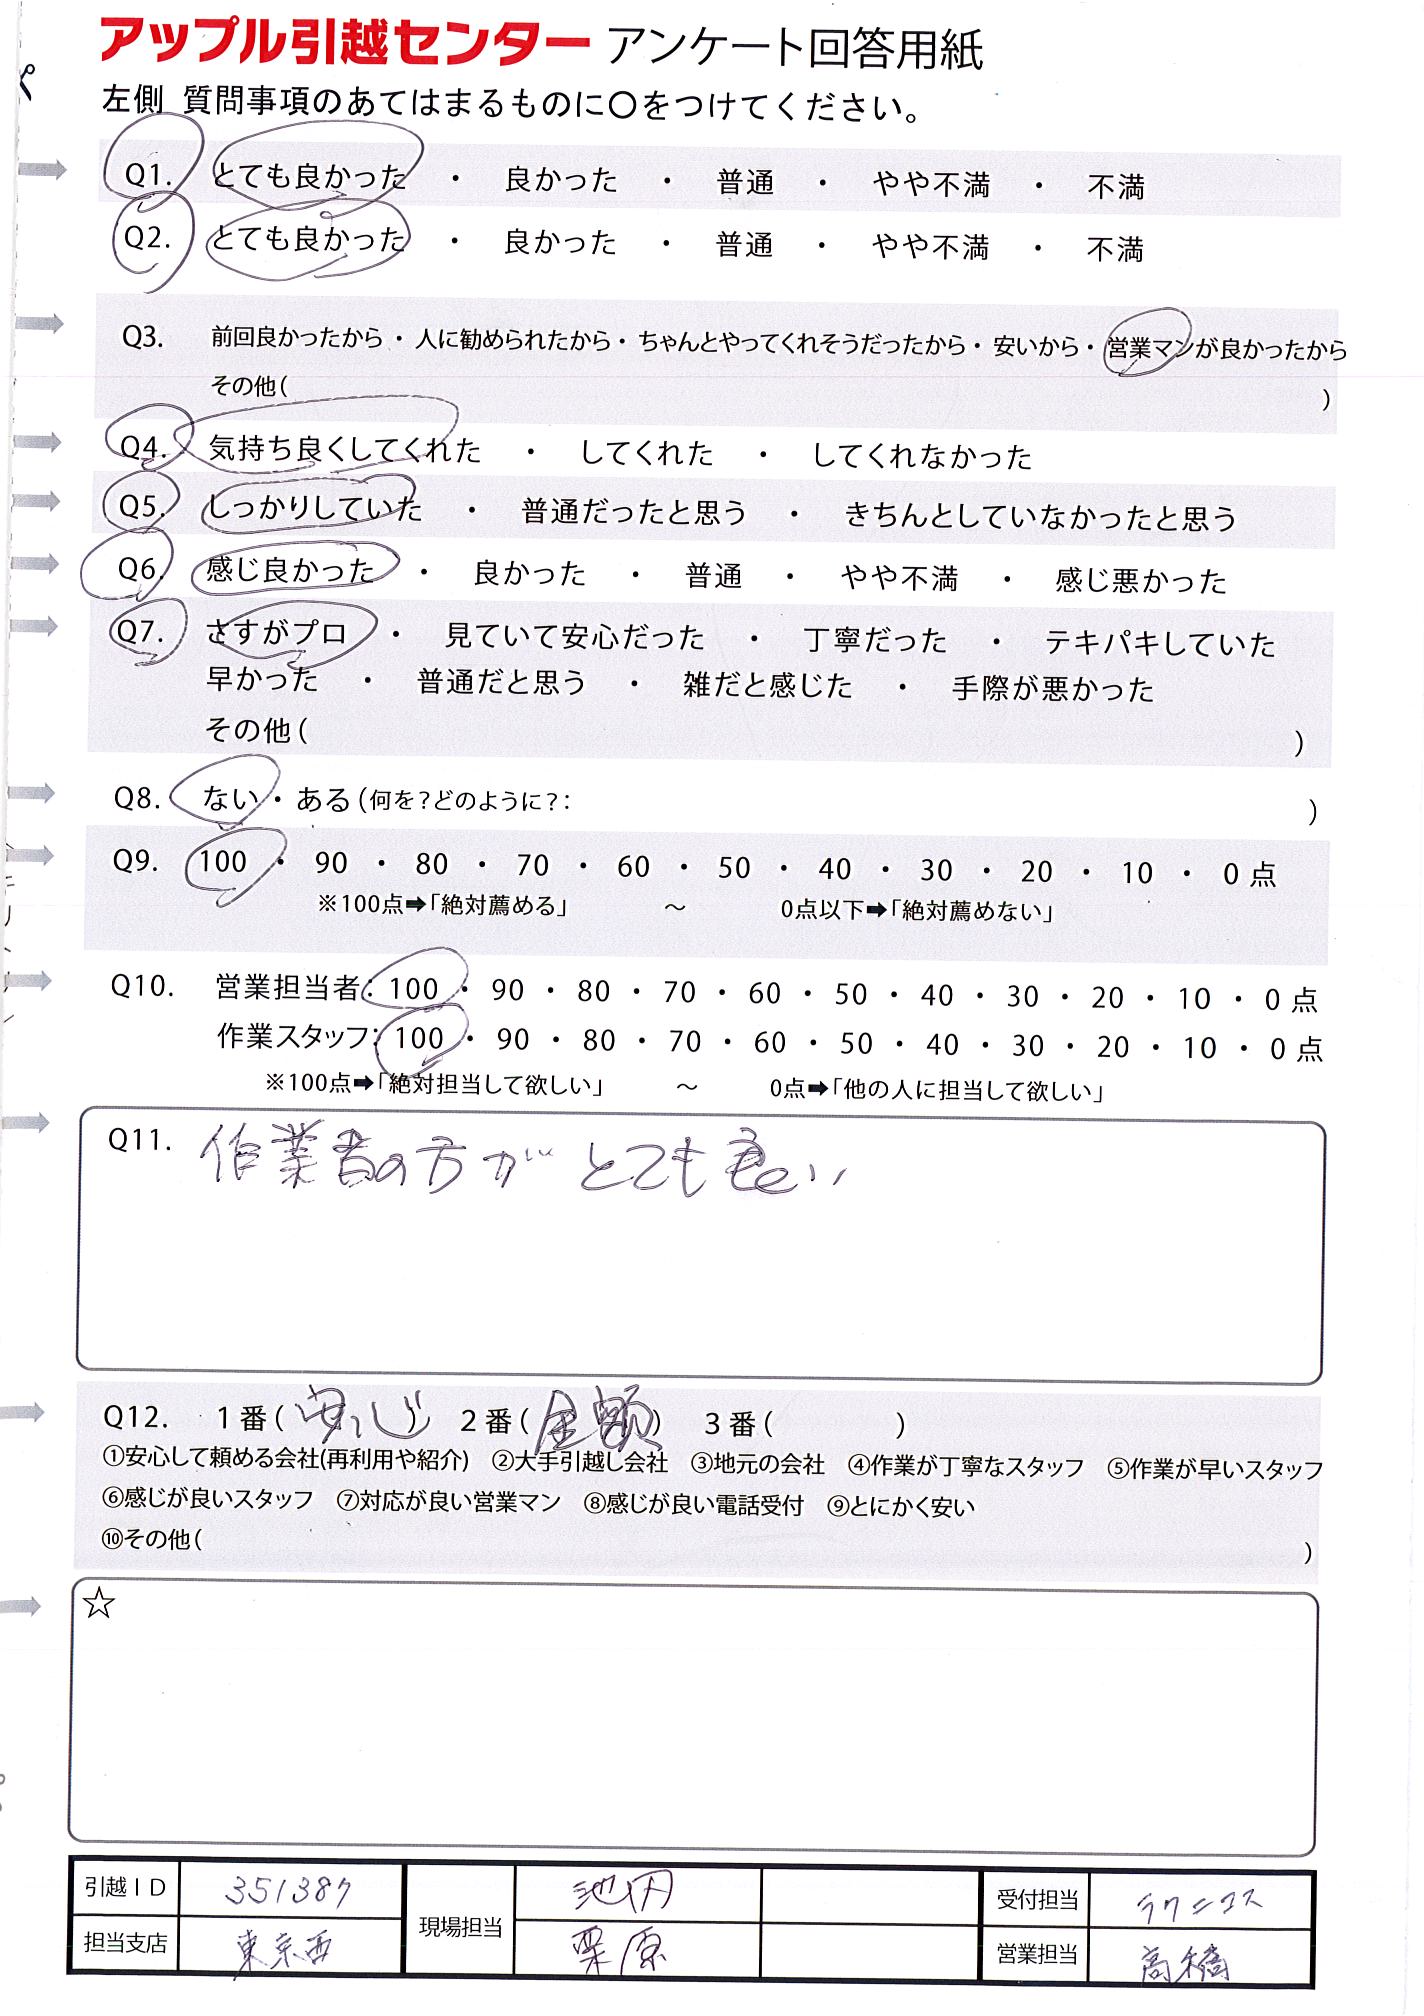 アップル引越センター アンケート回答用紙
左側 質問事項のあてはまるものに〇をつけてください。
Q1. とても良かった ・ 良かった ・ 普通 ・ やや不満 ・ 不満
Q2. とても良かった ・ 良かった ・ 普通 ・ やや不満 ・ 不満
Q3. 前回良かったから・人に勧められたから・ちゃんとやってくれそうだったから・安いから・営業マンが良かったから
その他( )
Q4. 気持ち良くしてくれた ・ してくれた ・ してくれなかった
Q5. しっかりしていた ・ 普通だったと思う ・ きちんとしていなかったと思う
Q6. 感じ良かった ・ 良かった ・ 普通 ・ やや不満 ・ 感じ悪かった
Q7. さすがプロ ・ 見ていて安心だった ・ 丁寧だった ・ テキパキしていた
早かった ・ 普通だと思う ・ 雑だと感じた ・ 手際が悪かった
その他( )
Q8. ない・ある(何を?どのように?: )
Q9. 100 ・ 90 ・ 80 ・ 70 ・ 60 ・ 50 ・ 40 ・ 30 ・ 20 ・ 10 ・ 0 点
※100点➡「絶対薦める」 ～ 0点以下➡「絶対薦めない」
Q10. 営業担当者: 100 ・ 90 ・ 80 ・ 70 ・ 60 ・ 50 ・ 40 ・ 30 ・ 20 ・ 10 ・ 0 点
作業スタッフ: 100 ・ 90 ・ 80 ・ 70 ・ 60 ・ 50 ・ 40 ・ 30 ・ 20 ・ 10 ・ 0 点
※100点➡「絶対担当して欲しい」 ～ 0点➡「他の人に担当して欲しい」
Q11. 作業者の方がとても良い
Q12. 1番( ) 2番(金額) 3番( )
①安心して頼める会社(再利用や紹介) ②大手引越し会社 ③地元の会社 ④作業が丁寧なスタッフ ⑤作業が早いスタッフ
⑥感じが良いスタッフ ⑦対応が良い営業マン ⑧感じが良い電話受付 ⑨とにかく安い
⑩その他( )
☆
引越ID 351387 現場担当 池田 受付担当 ラクニコス
担当支店 東京西 栗原 営業担当 高橋